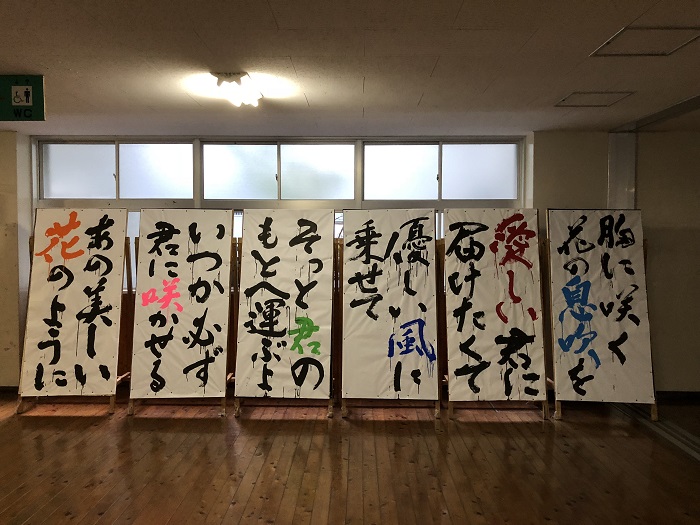 胸に咲く
花の息吹を
愛しい君に
届けたくて
優しい風に
乗せて
そっと君の
もとへ運ぶよ
いつか必ず
君に咲かせる
あの美しい
花のように
WC